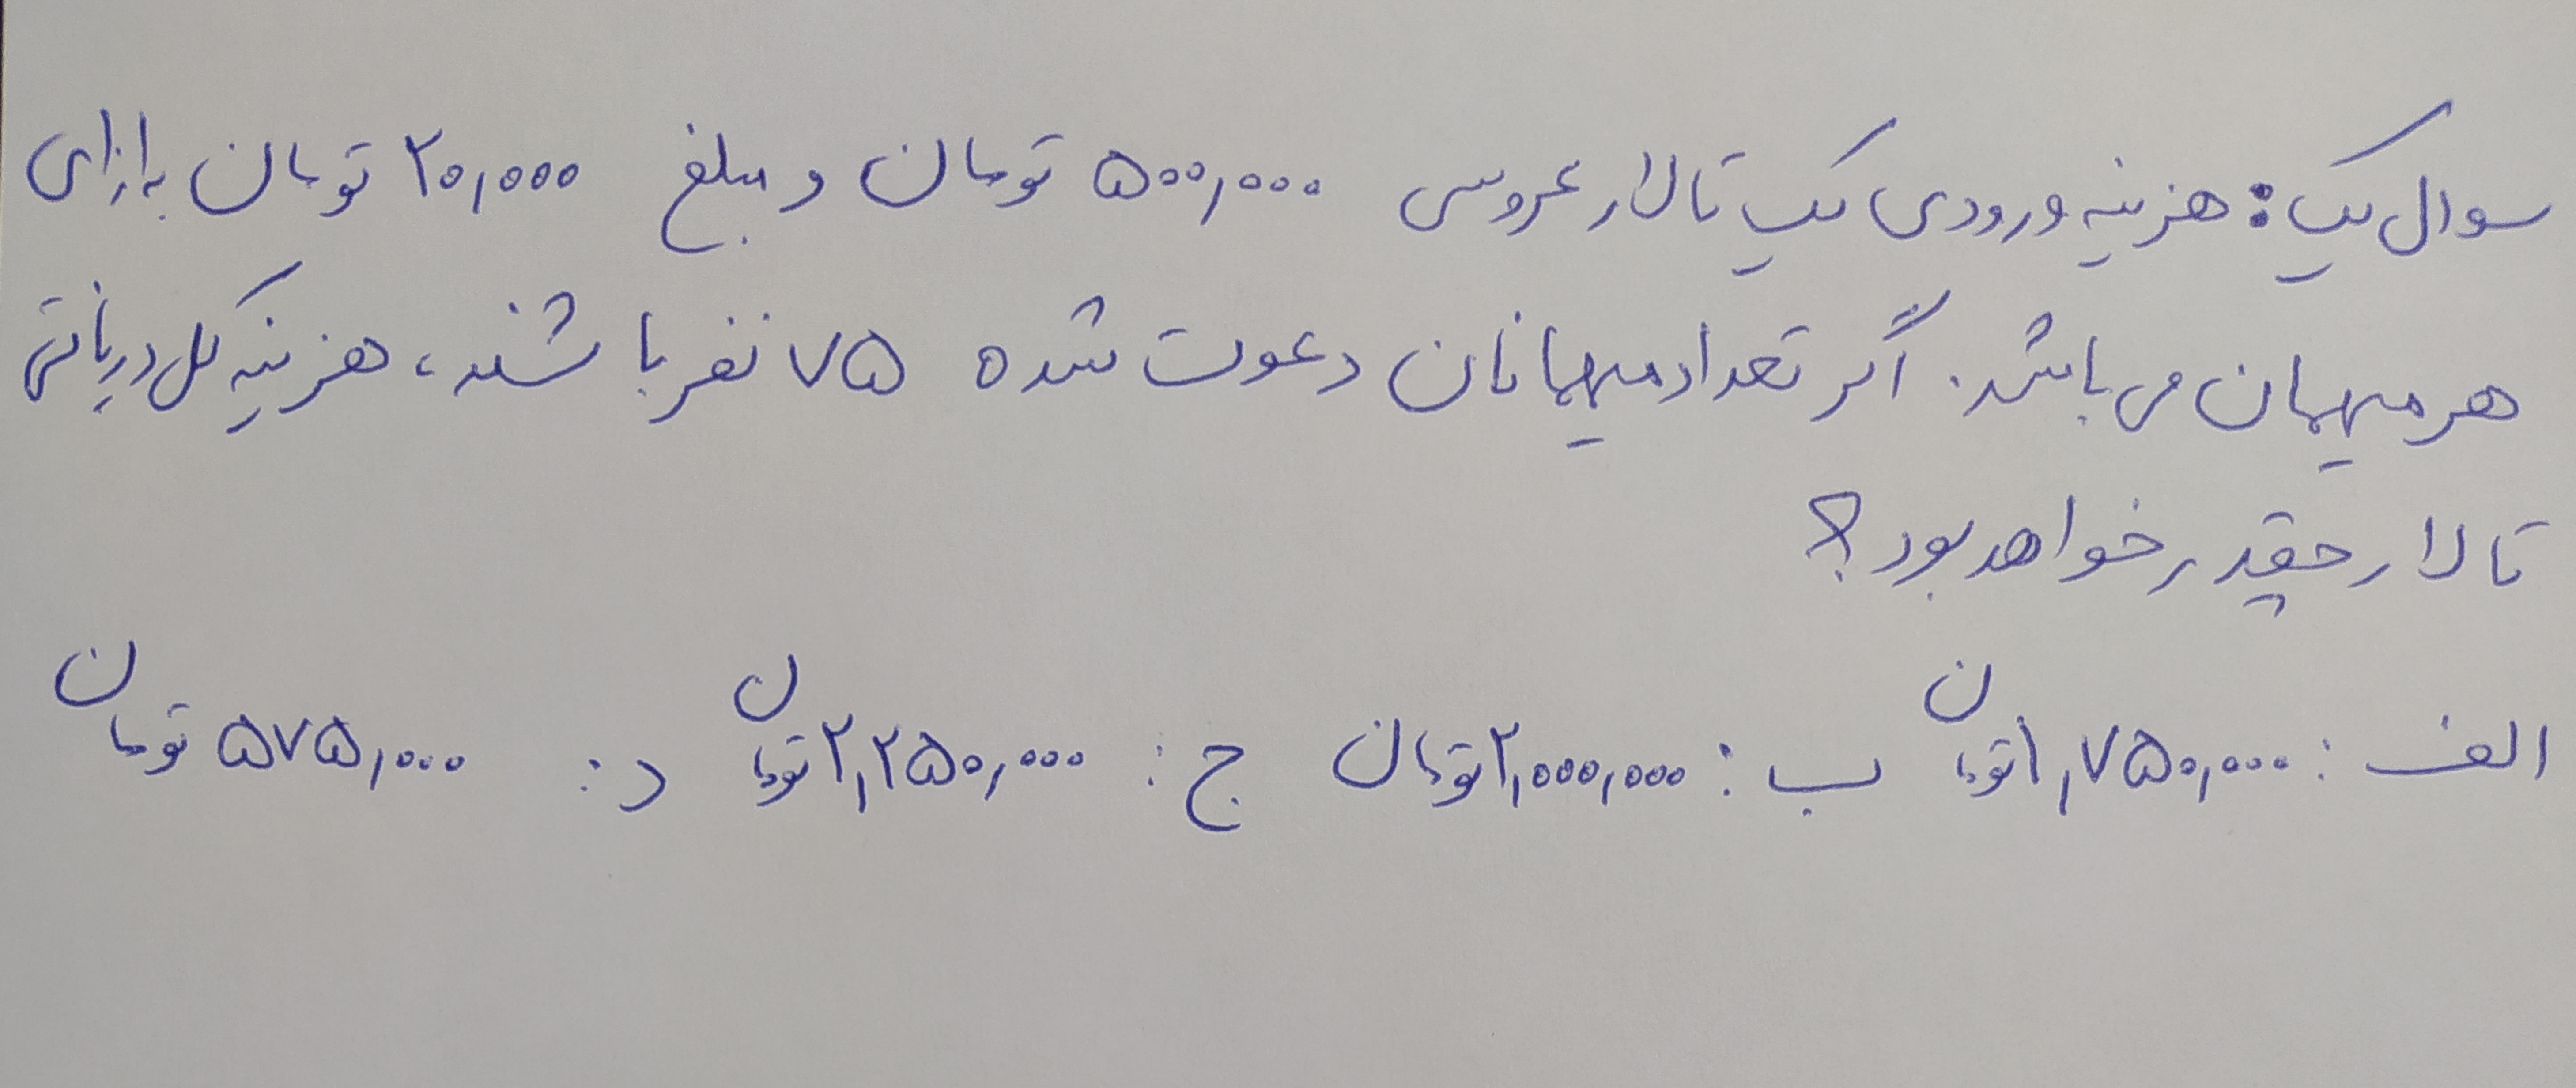 سوال یک: هزینه ورودی یک تالار عروسی ۵۰۰,۰۰۰ تومان و مبلغ ۲۰,۰۰۰ تومان به ازای
هر میهمان می باشد. اگر تعداد میهمانان دعوت شده ۷۵ نفر باشند، هزینه کل دریافتی
تالار چقدر خواهد بود؟
الف: ۱,۷۵۰,۰۰۰ تومان ب: ۲,۰۰۰,۰۰۰ تومان ج: ۲,۲۵۰,۰۰۰ تومان د: ۵۷۵,۰۰۰ تومان